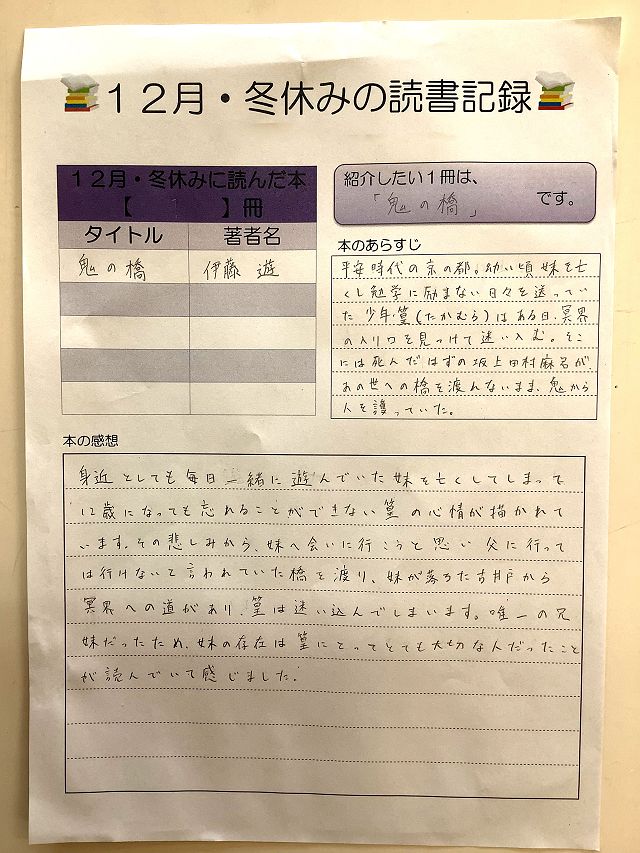 12月・冬休みの読書記録
12月・冬休みに読んだ本
【　　　　】冊
タイトル
著者名
鬼の橋
伊藤 遊
紹介したい1冊は、
「鬼の橋」
です。
本のあらすじ
平安時代の京の都。幼い頃妹を亡
くし勉学に励まない日々を送ってい
た少年篁(たかむら)はある日、冥界
の入り口を見つけて迷い入む。そこ
には死んだはずの坂上田村麻呂が、
あの世への橋を渡れないまま、鬼から
人を護っていた。
本の感想
身近としても毎日一緒に遊んでいた妹を亡くしてしまって
12歳になっても忘れることができない篁の心情が描かれて
います。その悲しみから、妹へ会いに行こうと思い父に行って
は行けないと言われていた橋を渡り、妹が落ちた古井戸から
冥界への道があり篁は迷い込んでしまいます。唯一の兄
妹だったため、妹の存在は篁にとってとても大切な人だったこと
が読んでいて感じました。